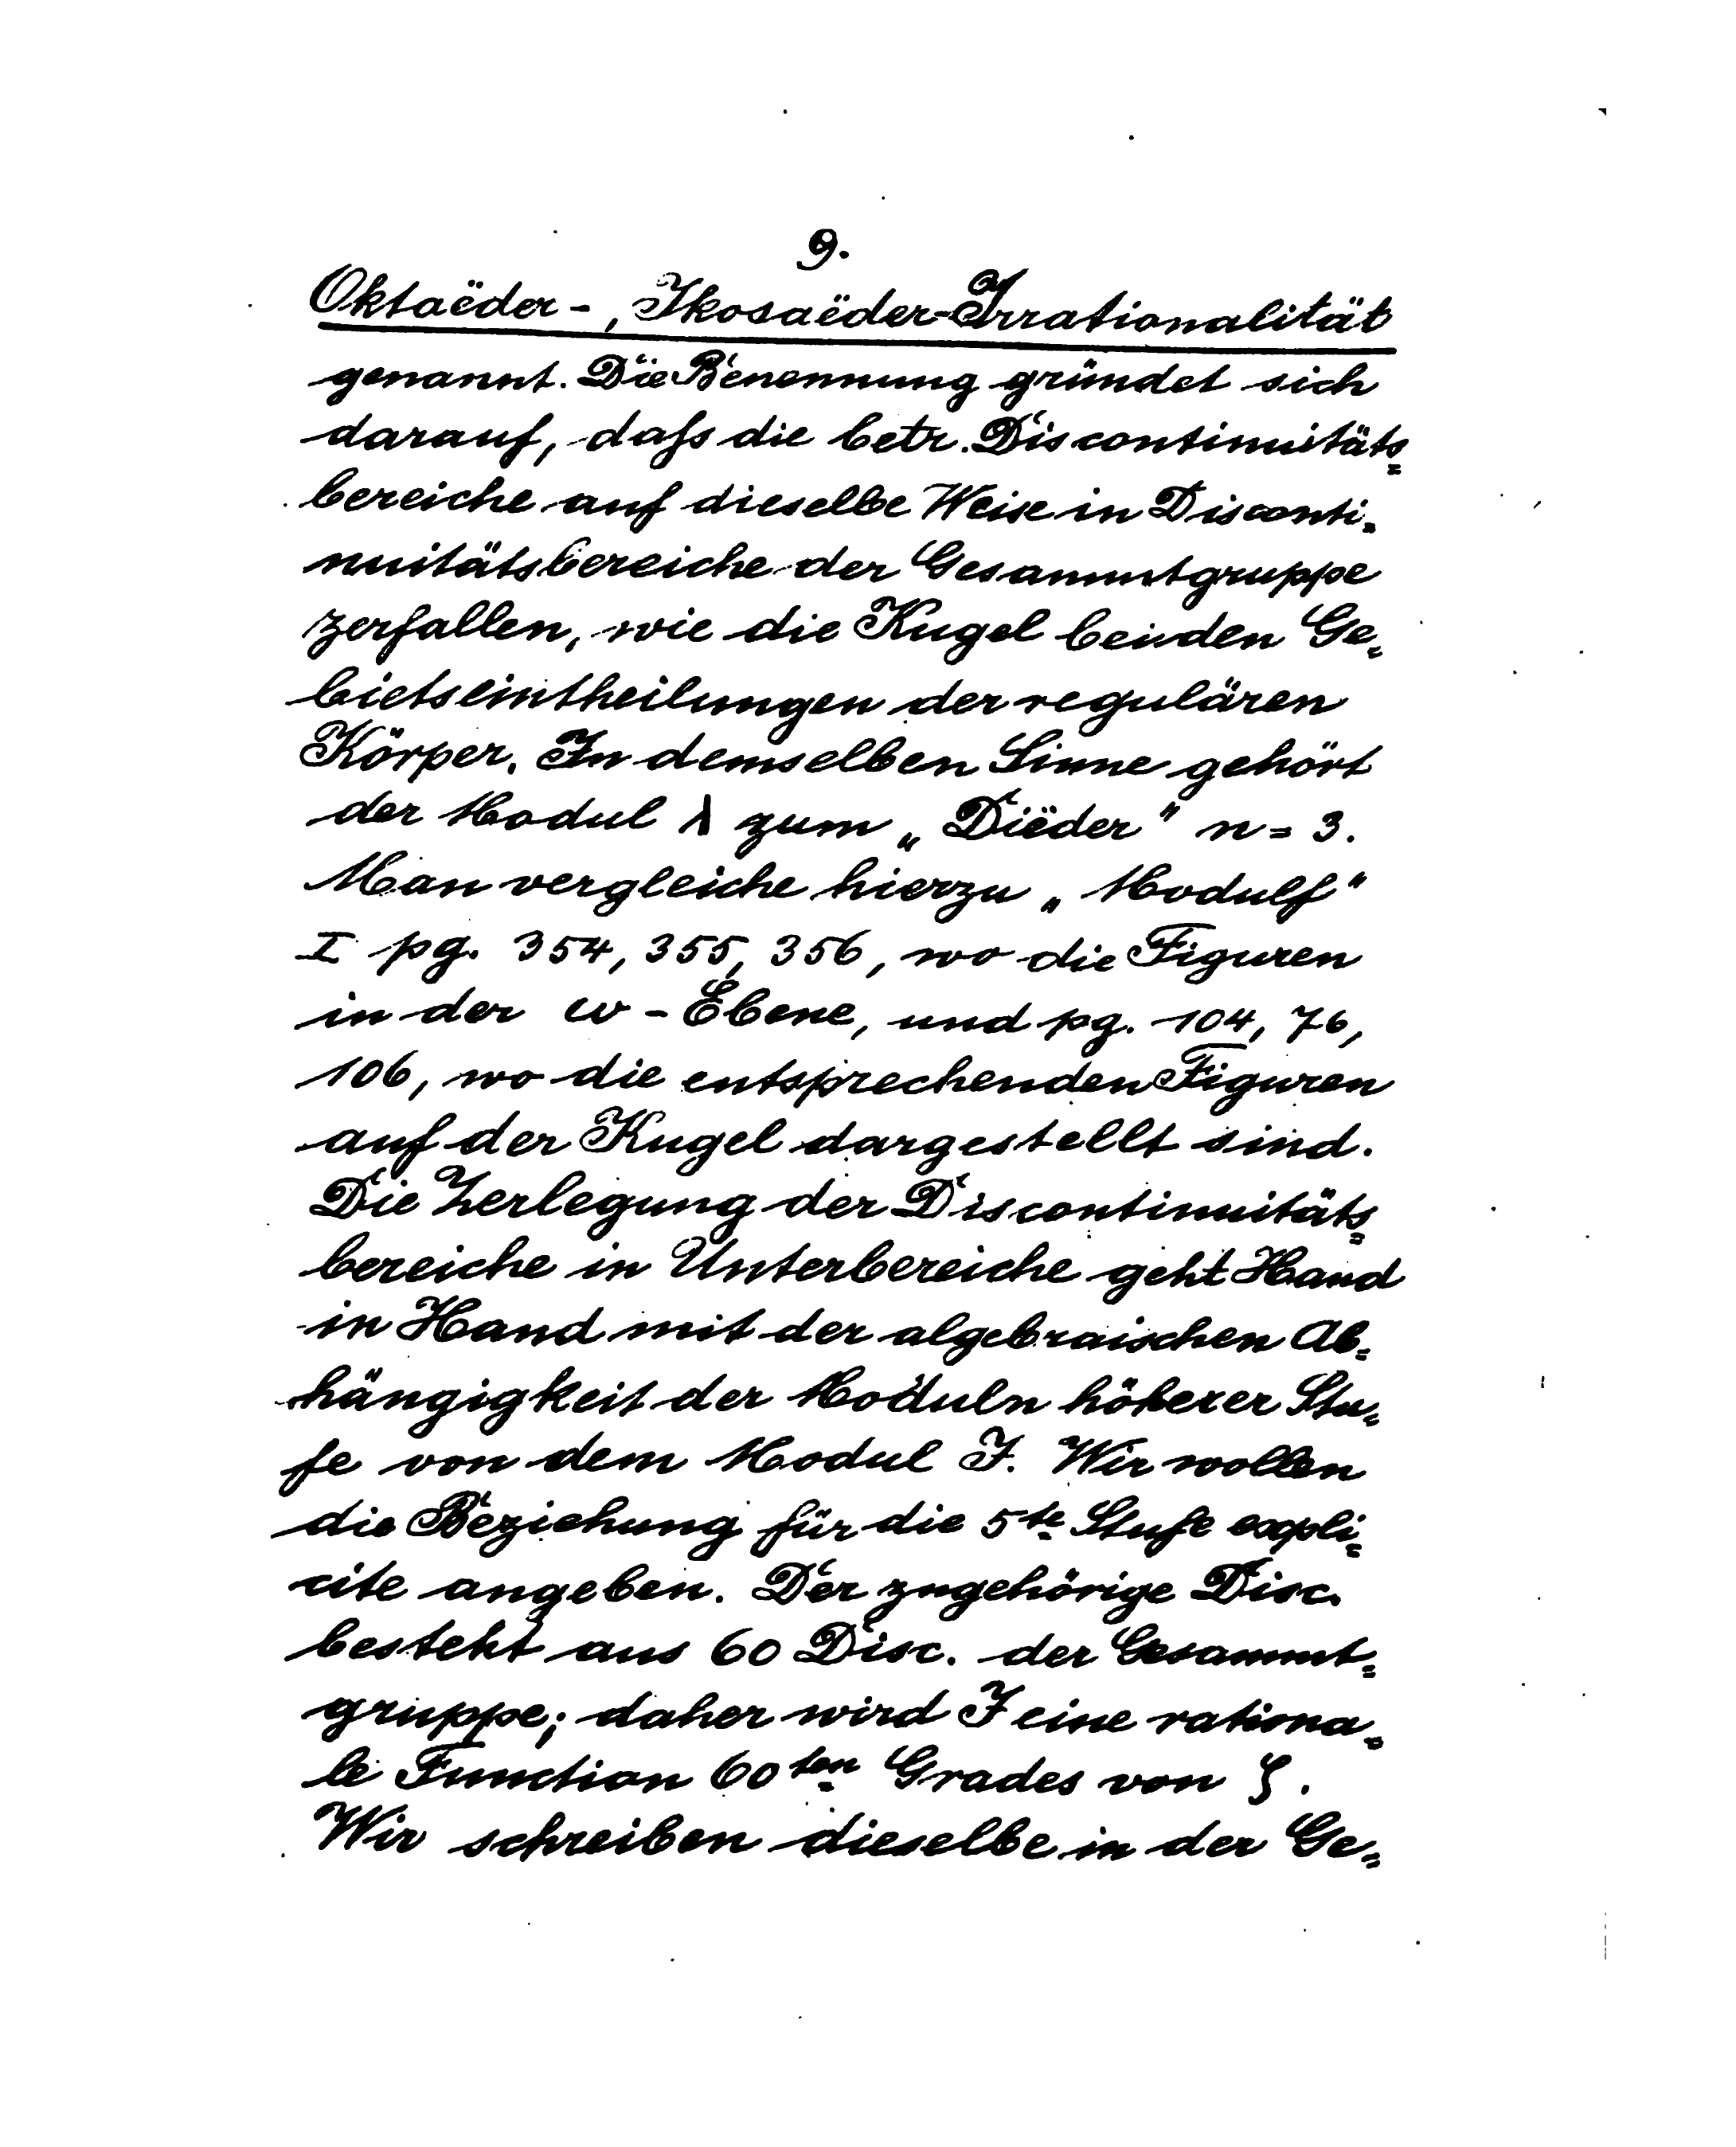 9.
Oktaëder-, Ikosaëder-Irrationalität
genannt. Die Benennung gründet sich
darauf, daſs die betr. Discontinuitäts=
bereiche auf dieselbe Weise in Disconti=
nuitätsbereiche der Gesammtgruppe
zerfallen, wie die Kugel bei den Ge=
bietseintheilungen der regulären
Körper. In demselben Sinne gehört
der Modul λ zum „Diëder" n = 3.
Man vergleiche hierzu „Modulf"
I pg. 354, 355, 356, wo die Figuren
in der ω-Ebene, und pg. 104, 76,
106, wo die entsprechenden Figuren
auf der Kugel dargestellt sind.
Die Zerlegung der Discontinuitäts=
bereiche in Unterbereiche geht Hand
in Hand mit der algebraischen Ab=
hängigkeit der Moduln höherer Stu=
fe von dem Modul J. Wir wollen
die Beziehung für die 5te Stufe expli=
cite angeben. Der zugehörige Disc.
besteht aus 60 Disc. der Gesammt=
gruppe; daher wird J eine rationa=
le Function 60ten Grades von ζ.
Wir schreiben dieselbe in der Ge=